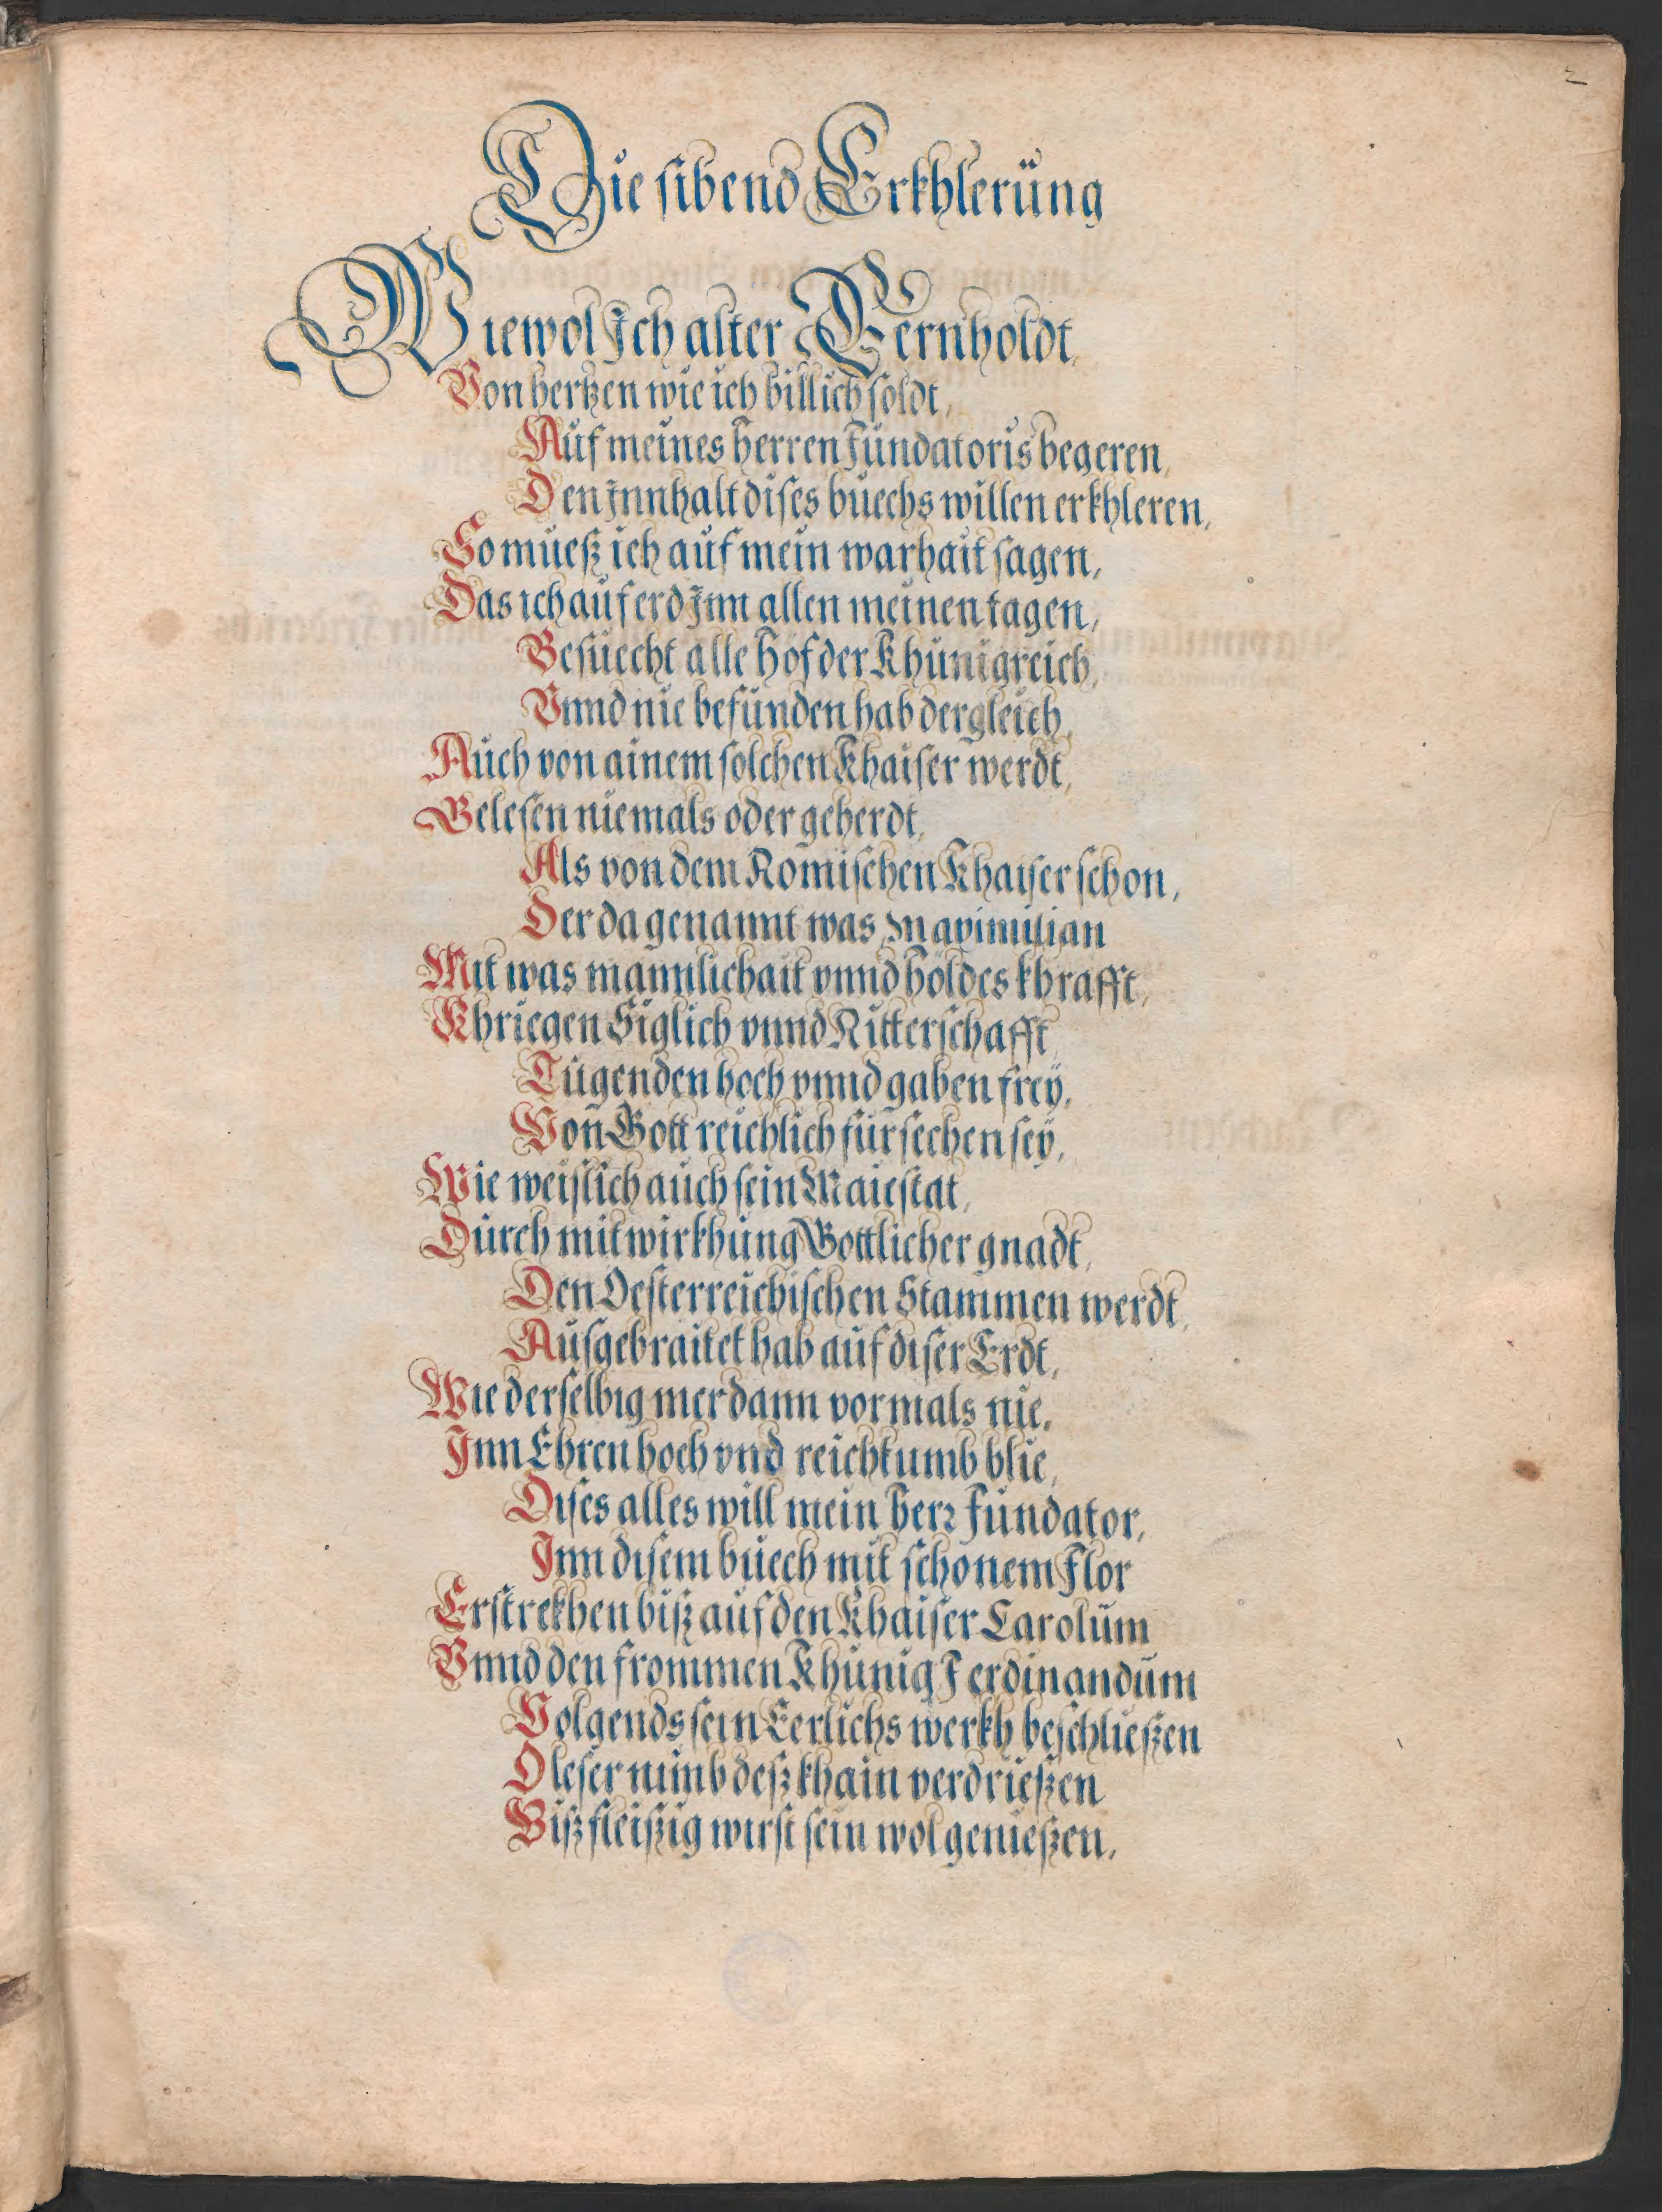 2
Die sibend Erkhlerüng
Wiewol Ich alter Gernholdt,
Von hertzen wie ich billich soldt,
Auf meines herren Fundatoris begeren,
Den Innhalt dises buechs willen erkhleren,
So mueß ich auf mein warhait sagen,
Das ich auf erd Inn allen meinen tagen,
Besuecht alle höf der Khunigreich,
Vnnd nie befunden hab dergleich,
Auch von ainem solchen Khaiser werdt,
Gelesen niemals oder geherdt,
Als von dem Romischen Khaiser schon,
Der da genannt was Maximilian
Mit was mannlichait vnnd höldes khrafft,
Khriegen Siglich vnnd Ritterschafft,
Tugenden hoch vnnd gaben freÿ,
Von Gott reichlich fürsechen seÿ,
Wie weislich auch sein Maiestat,
Durch mitwirkhung Gottlicher gnadt,
Den Oesterreichischen Stammen werdt,
Ausgebraitet hab auf diser Erdt,
Wie derselbig mer dann vormals nie,
Inn Ehren hoch vnd reichtumb blie,
Dises alles will mein herr Fundator,
Inn disem buech mit schönem Flor
Erstrekhen biß auf den Khaiser Carolüm
Vnnd den frommen Khünig Ferdinandüm
Volgends sein Eerlichs werkh beschließen
O leser nimb deß khain verdrießen
Biß fleißig wirst sein wol genießen,